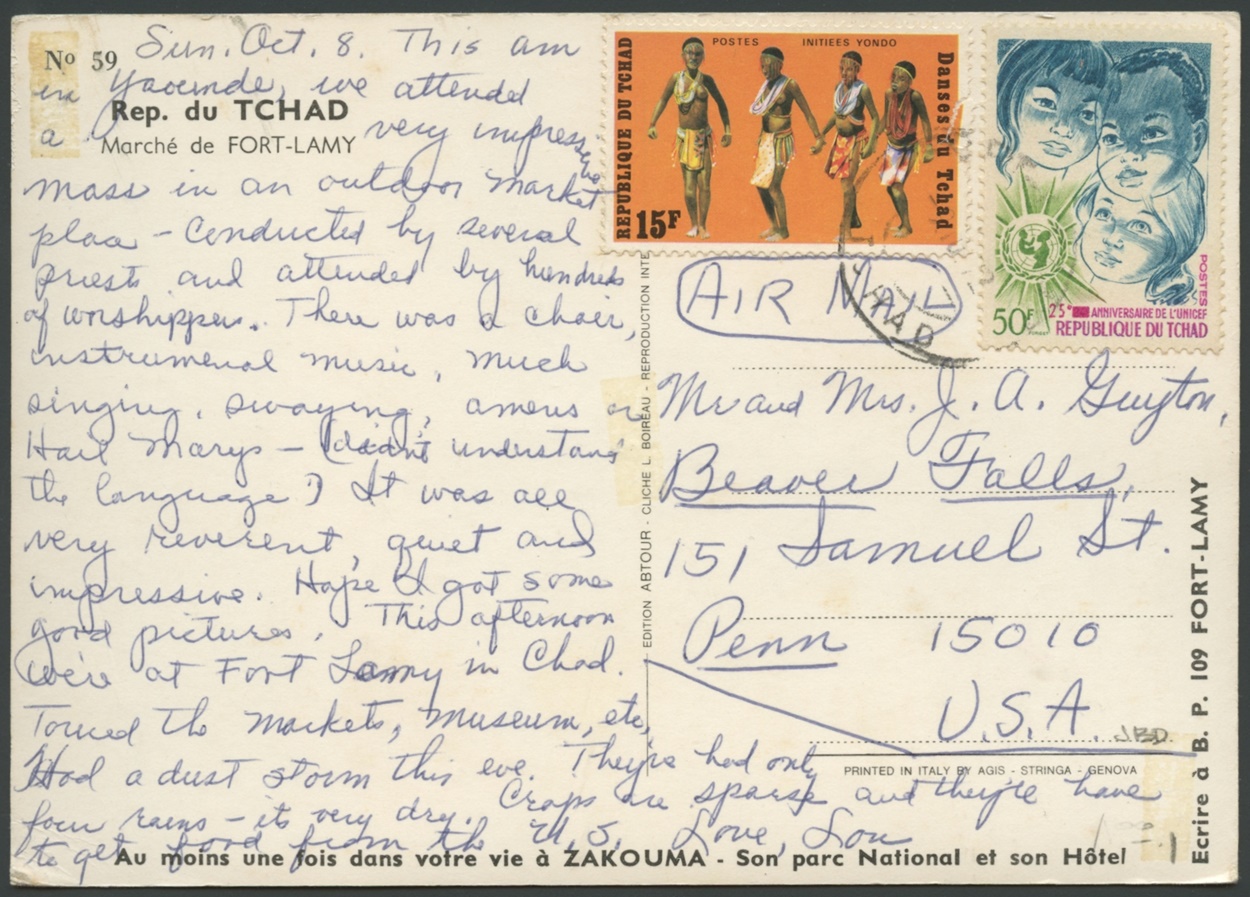 Nº 59
Rep. du TCHAD
Marché de FORT-LAMY
Sun. Oct. 8. This am
in Yaounde, we attended
a very impressive
mass in an outdoor market
place - conducted by several
priests and attended by hundreds
of worshippers. There was a choir,
instrumental music, much
singing, swaying, amens or
Hail Marys - (didn't understand
the language) It was all
very reverent, quiet and
impressive. Hope I got some
good pictures. This afternoon
we're at Fort Lamy in Chad.
Toured the markets, museum, etc.
Had a dust storm this eve. They've had only
four rains - its very dry. Crops are sparse and they're have
to get food from the U.S. Love, Lou
Au moins une fois dans votre vie à ZAKOUMA - Son parc National et son Hôtel
EDITION ABTOUR - CLICHE L. BOIREAU - REPRODUCTION INTE
REPUBLIQUE DU TCHAD
POSTES INITIEES YONDO
Danses du Tchad
15F
50F
25e ANNIVERSAIRE DE L'UNICEF
REPUBLIQUE DU TCHAD
POSTES
TCHAD
AIR MAIL
Mr and Mrs. J. A. Guyton,
Beaver Falls,
151 Samuel St.
Penn 15010
U.S.A.
JBD
PRINTED IN ITALY BY AGIS - STRINGA - GENOVA
Ecrire à B. P. 109 FORT-LAMY